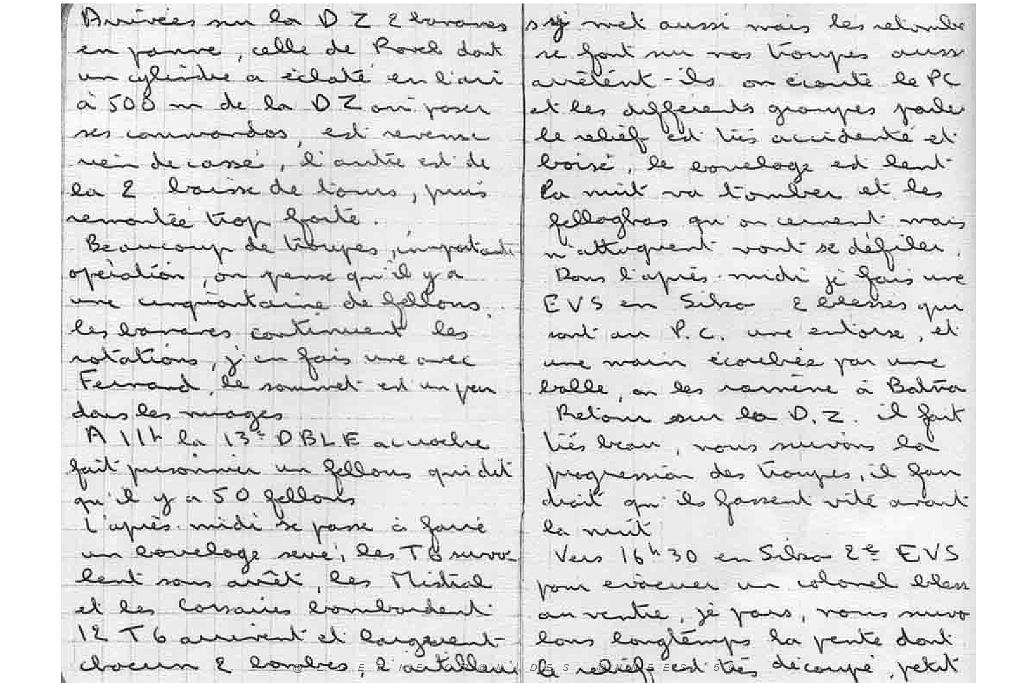 Arrivées sur la DZ 2 bananes
en panne, celle de Ravel dont
un cylindre a éclaté en l'air
à 500 m de la DZ ani poser
ses commandos, est revenue
rien de cassé, l'autre est de
la 2 baisse de tours, puis
remontée trop forte.
Beaucoup de troupes, importante
opération, on pense qu'il y a
une cinquantaine de fellouns.
les bananes continuent les
rotations, j'en fais une avec
Fernand, le sommet est un peu
dans les nuages
A 11h la 13e DBLE accroche
fait prisonnier un fellouns qui dit
qu'il y a 50 fellouns
L'après-midi se passe à faire
un bouclage serré, les T6 survo
lent sans arrêt, les Mistral
et les Corsaires bombardent
12 T6 arrivent et larguent
chacun 2 bombes, l'artillerie
s'y met aussi mais les retombé
se font sur nos troupes aussi
arrêtent-ils on écoute le PC
et les différents groupes parle
le relief est très accidenté et
boisé, le bouclage est lent
la nuit va tomber et les
fellaghas qu'on cernent mais
n'attaquent vont se défiler.
Dans l'après-midi je fais une
EVS en Silsa 2 blessés qui
sont au P.C. une entorse, et
une main écorchée par une
balle, on les ramène à Batna
Retour sur la D.Z. il fait
très beau, nous suivons la
progression des troupes, il fau
drait qu'ils fassent vite avant
la nuit
Vers 16h30 en Silsa 2e EVS
pour évacuer un colonel bless
au ventre, je pars, nous survo
lons longtemps la pente dont
le relief est très découpé, petit